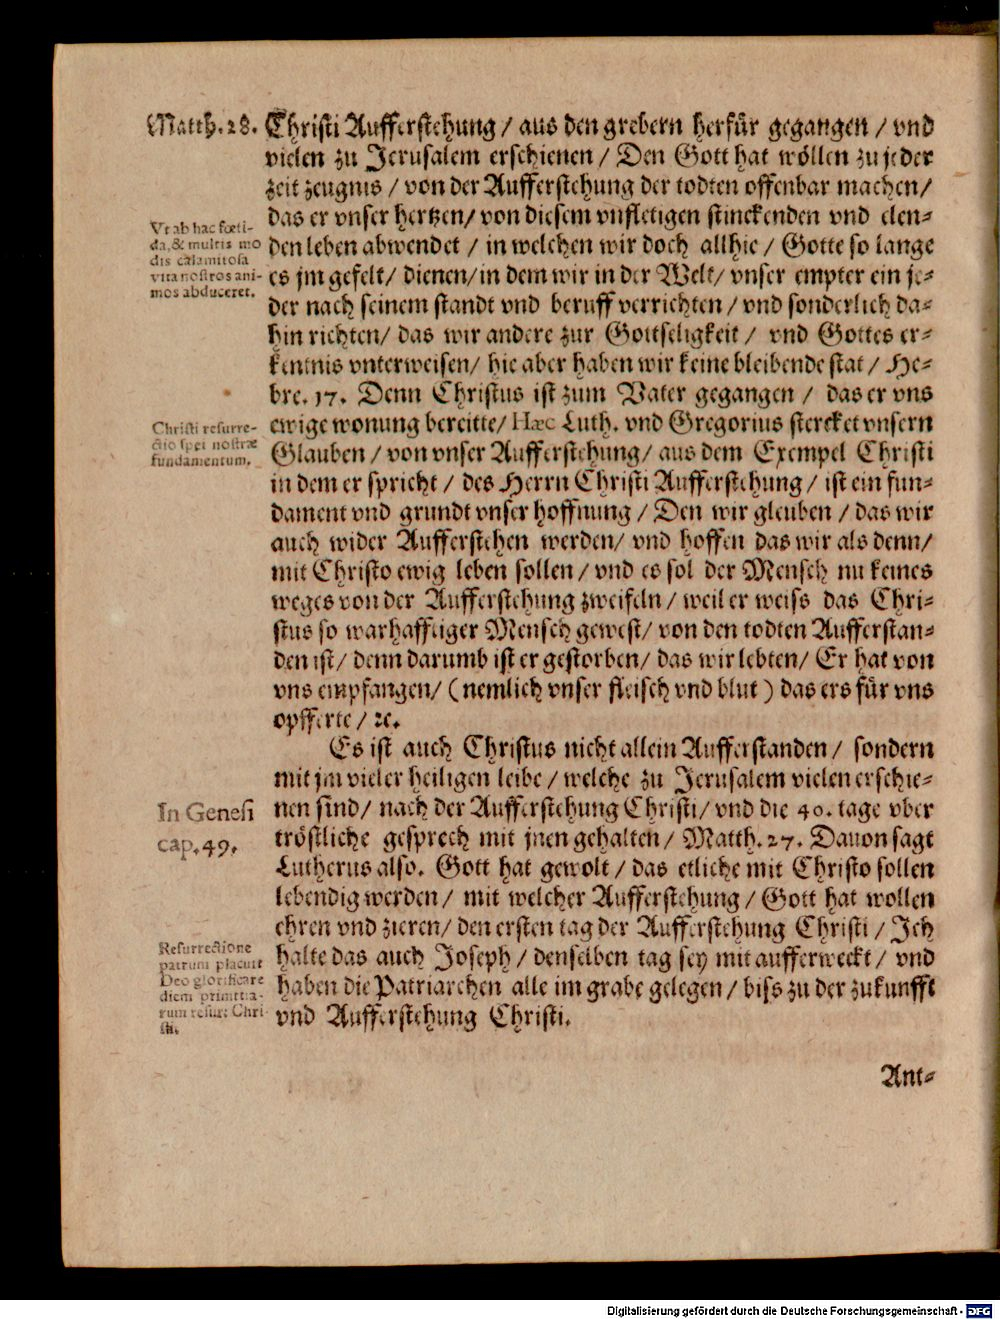 Matth. 28.
Christi Aufferstehung / aus den grebern herfür gegangen / vnd
vielen zu Jerusalem erschienen / Den Gott hat wöllen zu jeder
zeit zeugnis / von der Aufferstehung der todten offenbar machen /
das er vnser hertzen / von diesem vnfletigen stinckenden vnd elen⸗
den leben abwendet / in welchen wir doch allhie / Gotte so lange
es jm gefelt / dienen / in dem wir in der Welt / vnser empter ein je⸗
der nach seinem standt vnd beruff verrichten / vnd sonderlich da⸗
hin richten / das wir andere zur Gottseligkeit / vnd Gottes er⸗
kentnis vnterweisen / hie aber haben wir keine bleibende stat / He⸗
bre. 17. Denn Christus ist zum Vater gegangen / das er vns
ewige wonung bereitte / Hæc Luth. vnd Gregorius stercket vnsern
Glauben / von vnser Aufferstehung / aus dem Exempel Christi
in dem er spricht / des Herrn Christi Aufferstehung / ist ein fun⸗
dament vnd grundt vnser hoffnung / Den wir gleuben / das wir
auch wider Aufferstehen werden / vnd hoffen das wir als denn /
mit Christo ewig leben sollen / vnd es sol der Mensch nu keines
weges von der Aufferstehung zweifeln / weil er weiss das Chri⸗
stus so warhafftiger Mensch gewest / von den todten Aufferstan⸗
den ist / denn darumb ist er gestorben / das wir lebten / Er hat von
vns empfangen / (nemlich vnser fleisch vnd blut) das ers für vns
opfferte / ꝛc.
Es ist auch Christus nicht allein Aufferstanden / sondern
mit jm vieler heiligen leibe / welche zu Jerusalem vielen erschie⸗
nen sind / nach der Aufferstehung Christi / vnd die 40. tage vber
tröstliche gesprech mit jnen gehalten / Matth. 27. Dauon sagt
Lutherus also. Gott hat gewolt / das etliche mit Christo sollen
lebendig werden / mit welcher Aufferstehung / Gott hat wollen
ehren vnd zieren / den ersten tag der Aufferstehung Christi / Ich
halte das auch Joseph / denselben tag sey mit aufferweckt / vnd
haben die Patriarchen alle im grabe gelegen / biss zu der zukunfft
vnd Aufferstehung Christi.
Ant⸗
Vt ab hac fœti-
da, & multis mo
dis calamitosa
vita nostros ani-
mos abduceret.
Christi resurre-
ctio spei nostræ
fundamentum.
In Genesi
cap. 49.
Resurrectione
patrum placuit
Deo glorificare
diem primitia-
rum resur: Chri
sti.
Digitalisierung gefördert durch die Deutsche Forschungsgemeinschaft - DFG